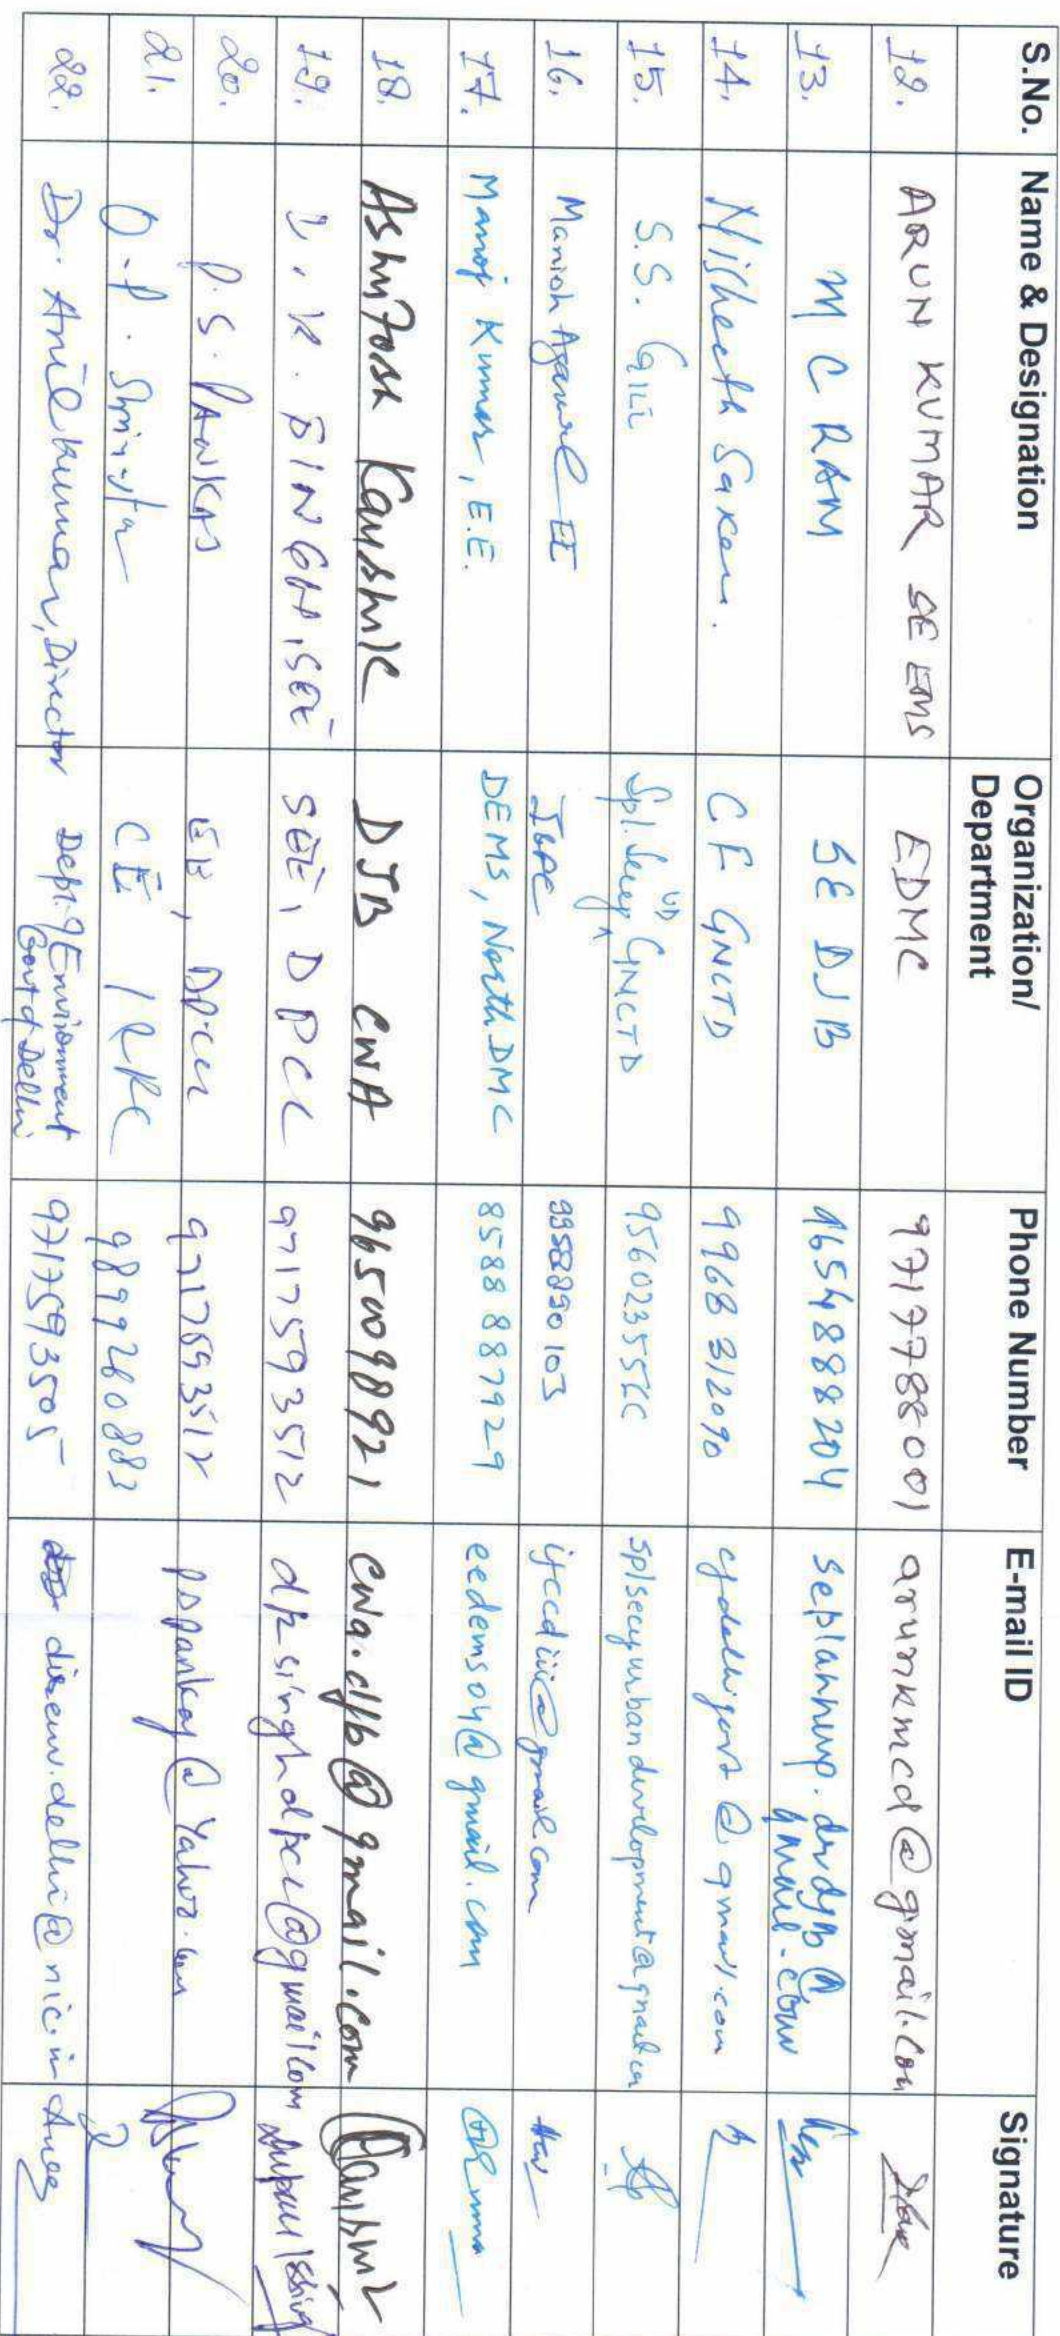 S.No. Name & Designation Organization/ Department Phone Number E-mail ID Signature
12. ARUN KUMAR SE EMS EDMC 9717788001 arunkmcd@gmail.com
13. M C RAM SE DJB 9654888204 drdjb@gmail.com
14. Nisheeth Saxena. CF GNCTD 9968312090 @gmail.com
15. S.S. GILL Spl. Secy UD GNCTD splsecyurbandevelopment@gmail.com
16. Manish Agarwal EE 9958890103 @gmail.com
17. Manoj Kumar, E.E. DEMS, North DMC 8588887929 eedems04@gmail.com
18. Ashutosh Kaushik DJB CWA 9650098921 cwa.djb@gmail.com
19. D.K. SINGH, SEE SEE, DPCC 9717593512 dksinghdpcc@gmail.com
20. P.S. PANKAJ EE, 9717593512 pspankaj@yahoo.com
21. O.P. CE 9899260883
22. Dr. Anil Kumar, Director Dept. of Environment Govt of Delhi 9717593505 direnv.delhi@nic.in